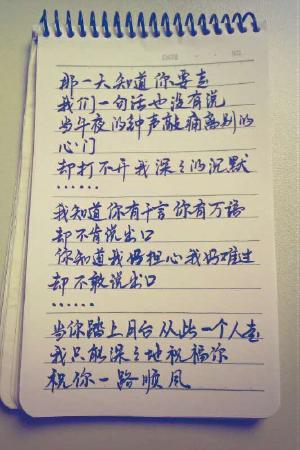 那一天知道你要走
我们一句话也没有说
当午夜的钟声敲痛离别的
心门
却打不开我深々的沉默
……
我知道你有千言你有万语
却不肯说出口
你知道我好担心我好难过
却不敢说出口
……
当你踏上月台从此一个人走
我只能深々地祝福你
祝你一路顺风